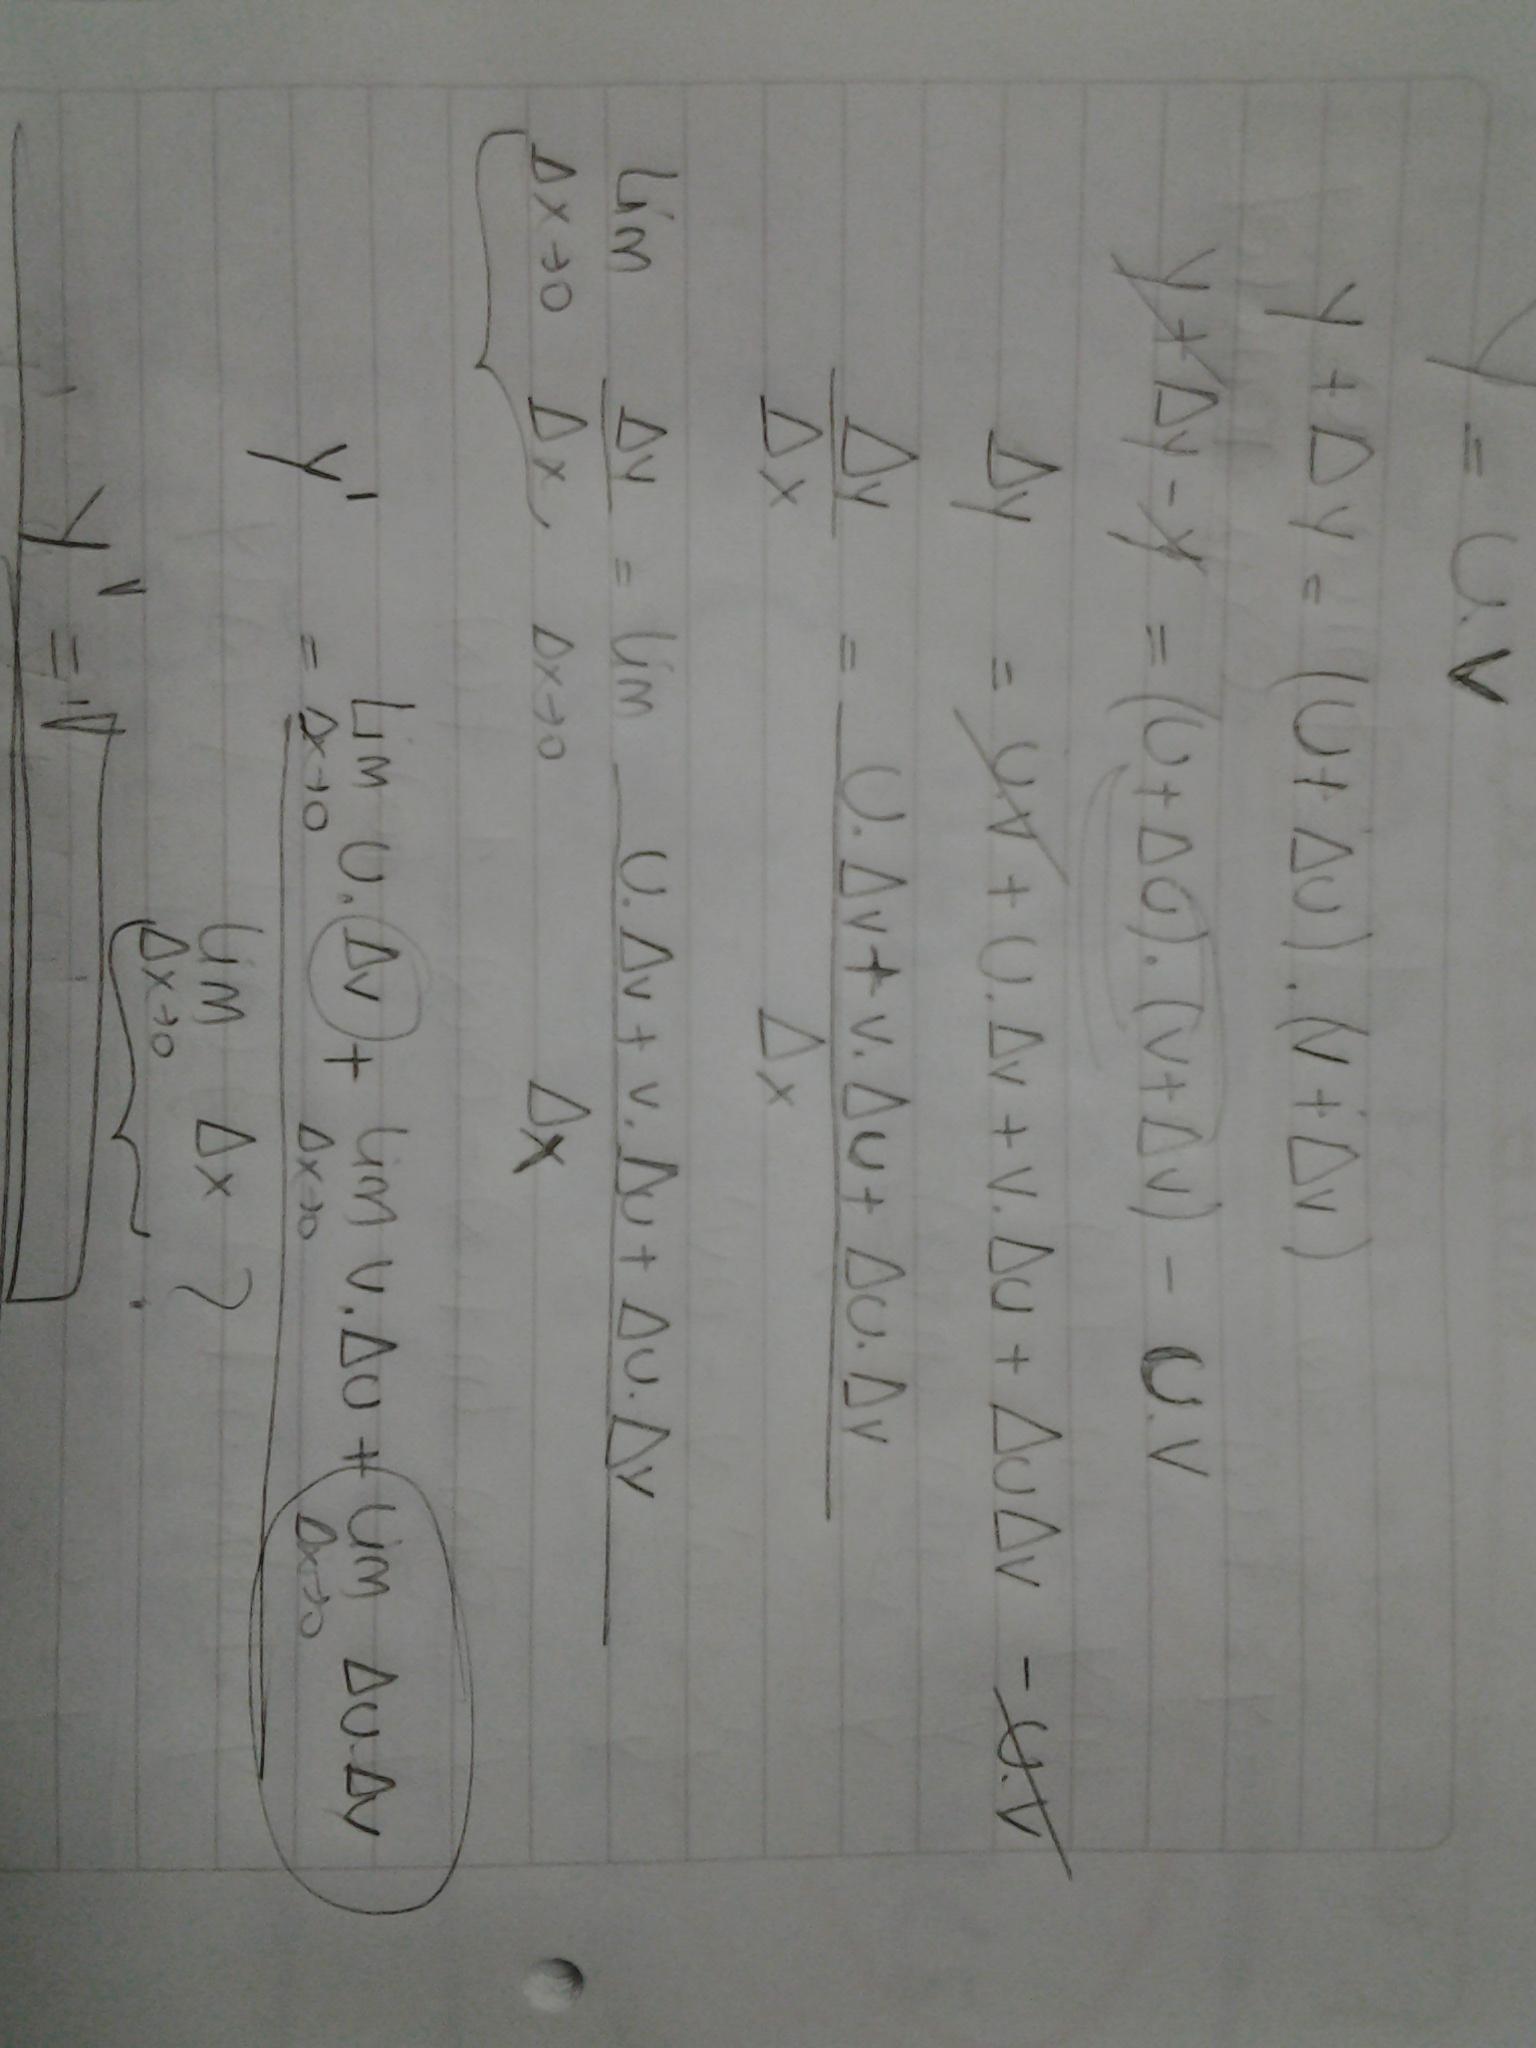 y = U.V
y + Δy = (U + Δu).(v + Δv)
y + Δy - y = (U + ΔU).(v + Δv) - U.V
Δy = uv + U.Δv + v.Δu + ΔuΔv - U.V
Δy/Δx = U.Δv + v.Δu + Δu.Δv / Δx
Lim Δx→0 Δy/Δx = Lim Δx→0 U.Δv + v.Δu + Δu.Δv / Δx
y' = Lim Δx→0 U.Δv + Lim Δx→0 v.Δu + Lim Δx→0 Δu.Δv
Lim Δx→0 Δx ?